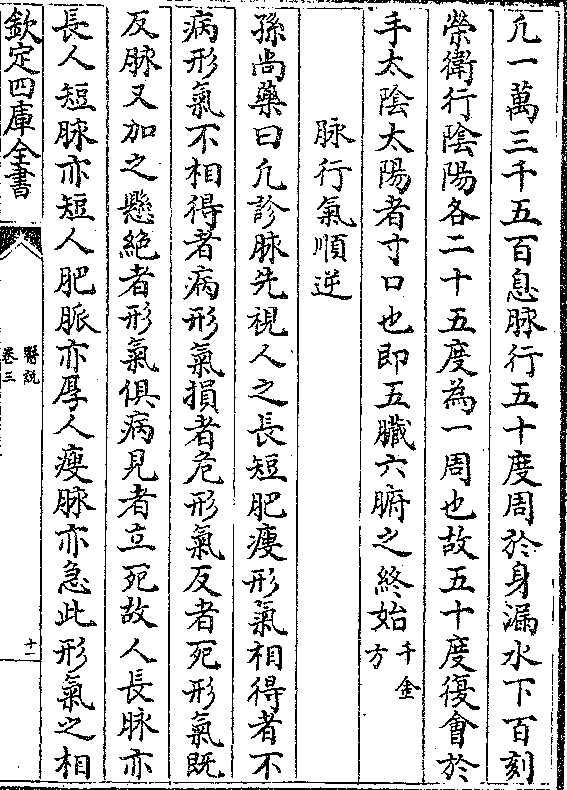 凢一萬三千五百息脉行五十度周於身漏水下百刻
榮衛行陰陽各二十五度為一周也故五十度復會於
手太陰太陽者寸口也即五臓六腑之終始千金方
脉行氣順逆
孫尚藥曰凢診脉先視人之長短肥瘦形氣相得者不
病形氣不相得者病形氣損者危形氣反者死形氣既
反脉又加之懸絶者形氣俱病見者立死故人長脉亦
長人短脉亦短人肥脈亦厚人瘦脉亦急此形氣之相
欽定四庫全書
醫説
卷三
十二